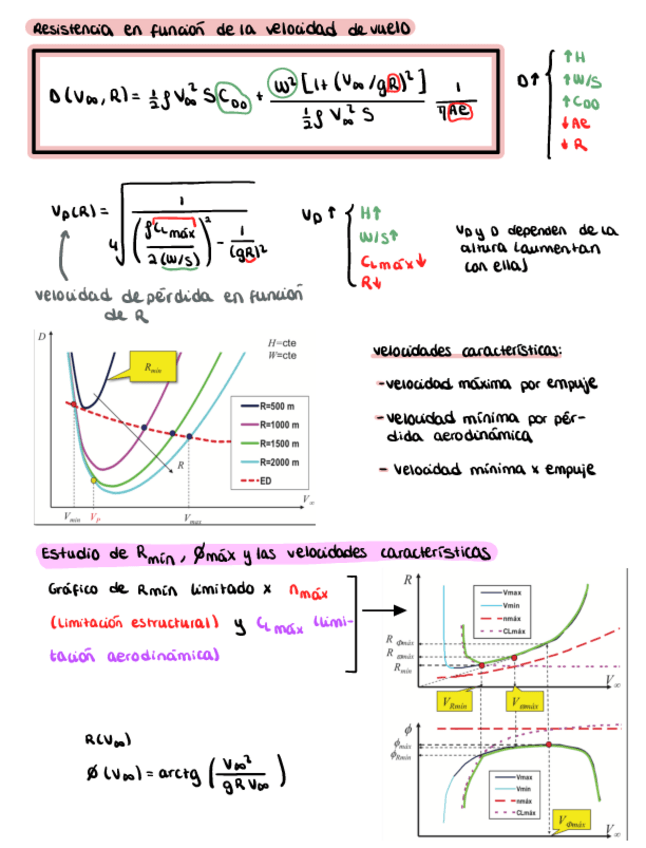 Resistencia en función de la velocidad de vuelo
D(V∞, R) = ½ρV∞² S C_D0 + W² [1+(V∞/gR)²] / (½ρV∞² S) · 1/(πAe)
D↑ { ↑H
↑W/S
↑C_D0
↓Ae
↓R
V_p(R) = ⁴√( 1 / ( (ρC_Lmáx / 2(W/S))² - 1/(gR)² ) )
V_p ↑ { H↑
W/S↑
C_Lmáx↓
R↓
V_p y D dependen de la
altura (aumentan
con ella)
velocidad de pérdida en función
de R
D
H=cte
W=cte
R_min
R=500 m
R=1000 m
R=1500 m
R=2000 m
ED
R
V_min V_p V_max V∞
velocidades características:
-velocidad máxima por empuje
-velocidad mínima por pér-
dida aerodinámica
- velocidad mínima x empuje
Estudio de Rmín, Ømáx y las velocidades características
Gráfico de Rmín limitado x nmáx
(limitación estructural) y CLmáx (limi-
tación aerodinámica)
R
Vmax
Vmin
nmáx
CLmáx
R_Φmáx
R_ϖmáx
R_min
V_Rmin V_ϖmáx V∞
R(V∞)
Ø(V∞) = arctg (V∞² / gR V∞)
ϕ
ϕmáx
ϕRmin
Vmax
Vmin
nmáx
CLmáx
V_Φmáx
V∞